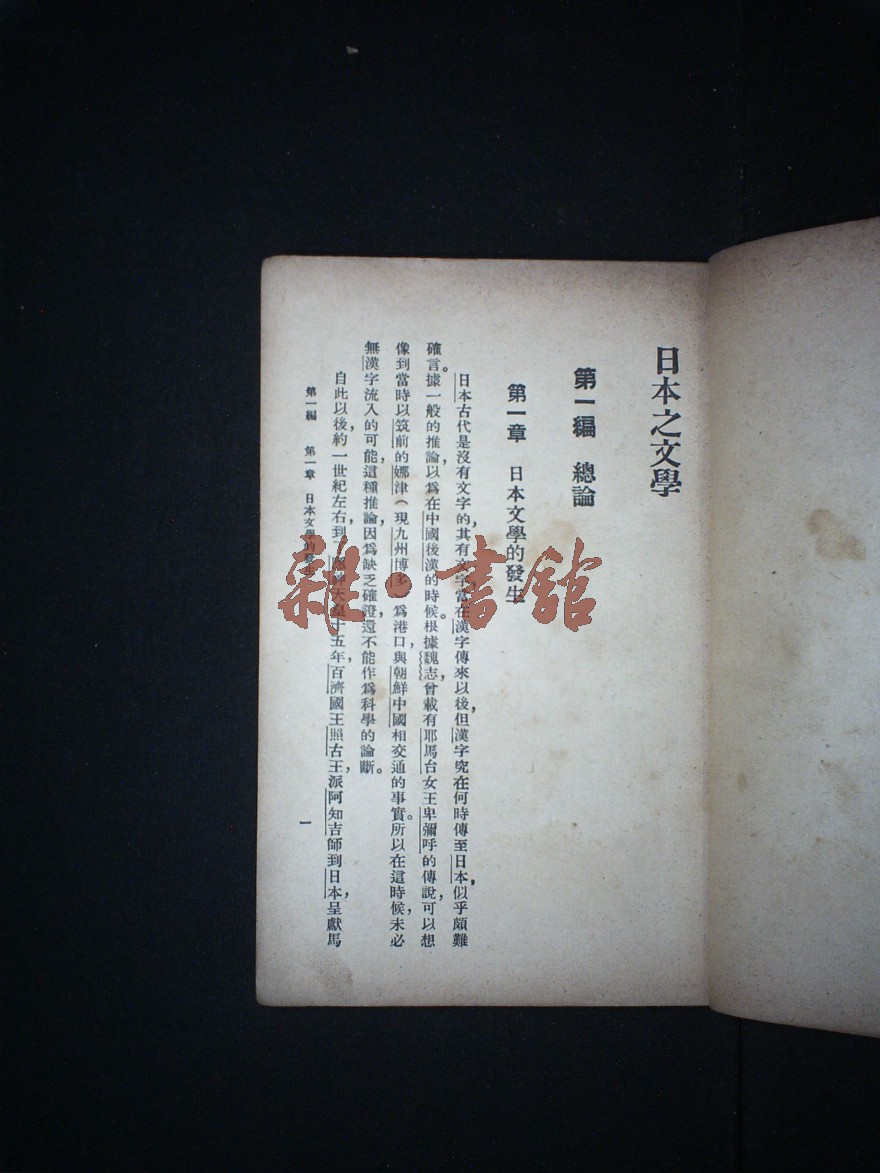 日本之文學
第一編　總論
第一章　日本文學的發生
日本古代是沒有文字的，其有文字，當在漢字傳來以後，但漢字究在何時傳至日本，似乎頗難
確言。據一般的推論，以爲在中國後漢的時候。根據魏志，曾載有耶馬台女王卑彌呼的傳說，可以想
像到當時以筑前的娜津（現九州博多）爲港口，與朝鮮中國相交通的事實。所以在這時候，未必
無漢字流入的可能，這種推論，因爲缺乏確證，還不能作爲科學的論斷。
自此以後，約一世紀左右，到了應神天皇十五年，百濟國王照古王，派阿知吉師到日本，呈獻馬
第一編　第一章　日本文學的發生
一
雜·書館